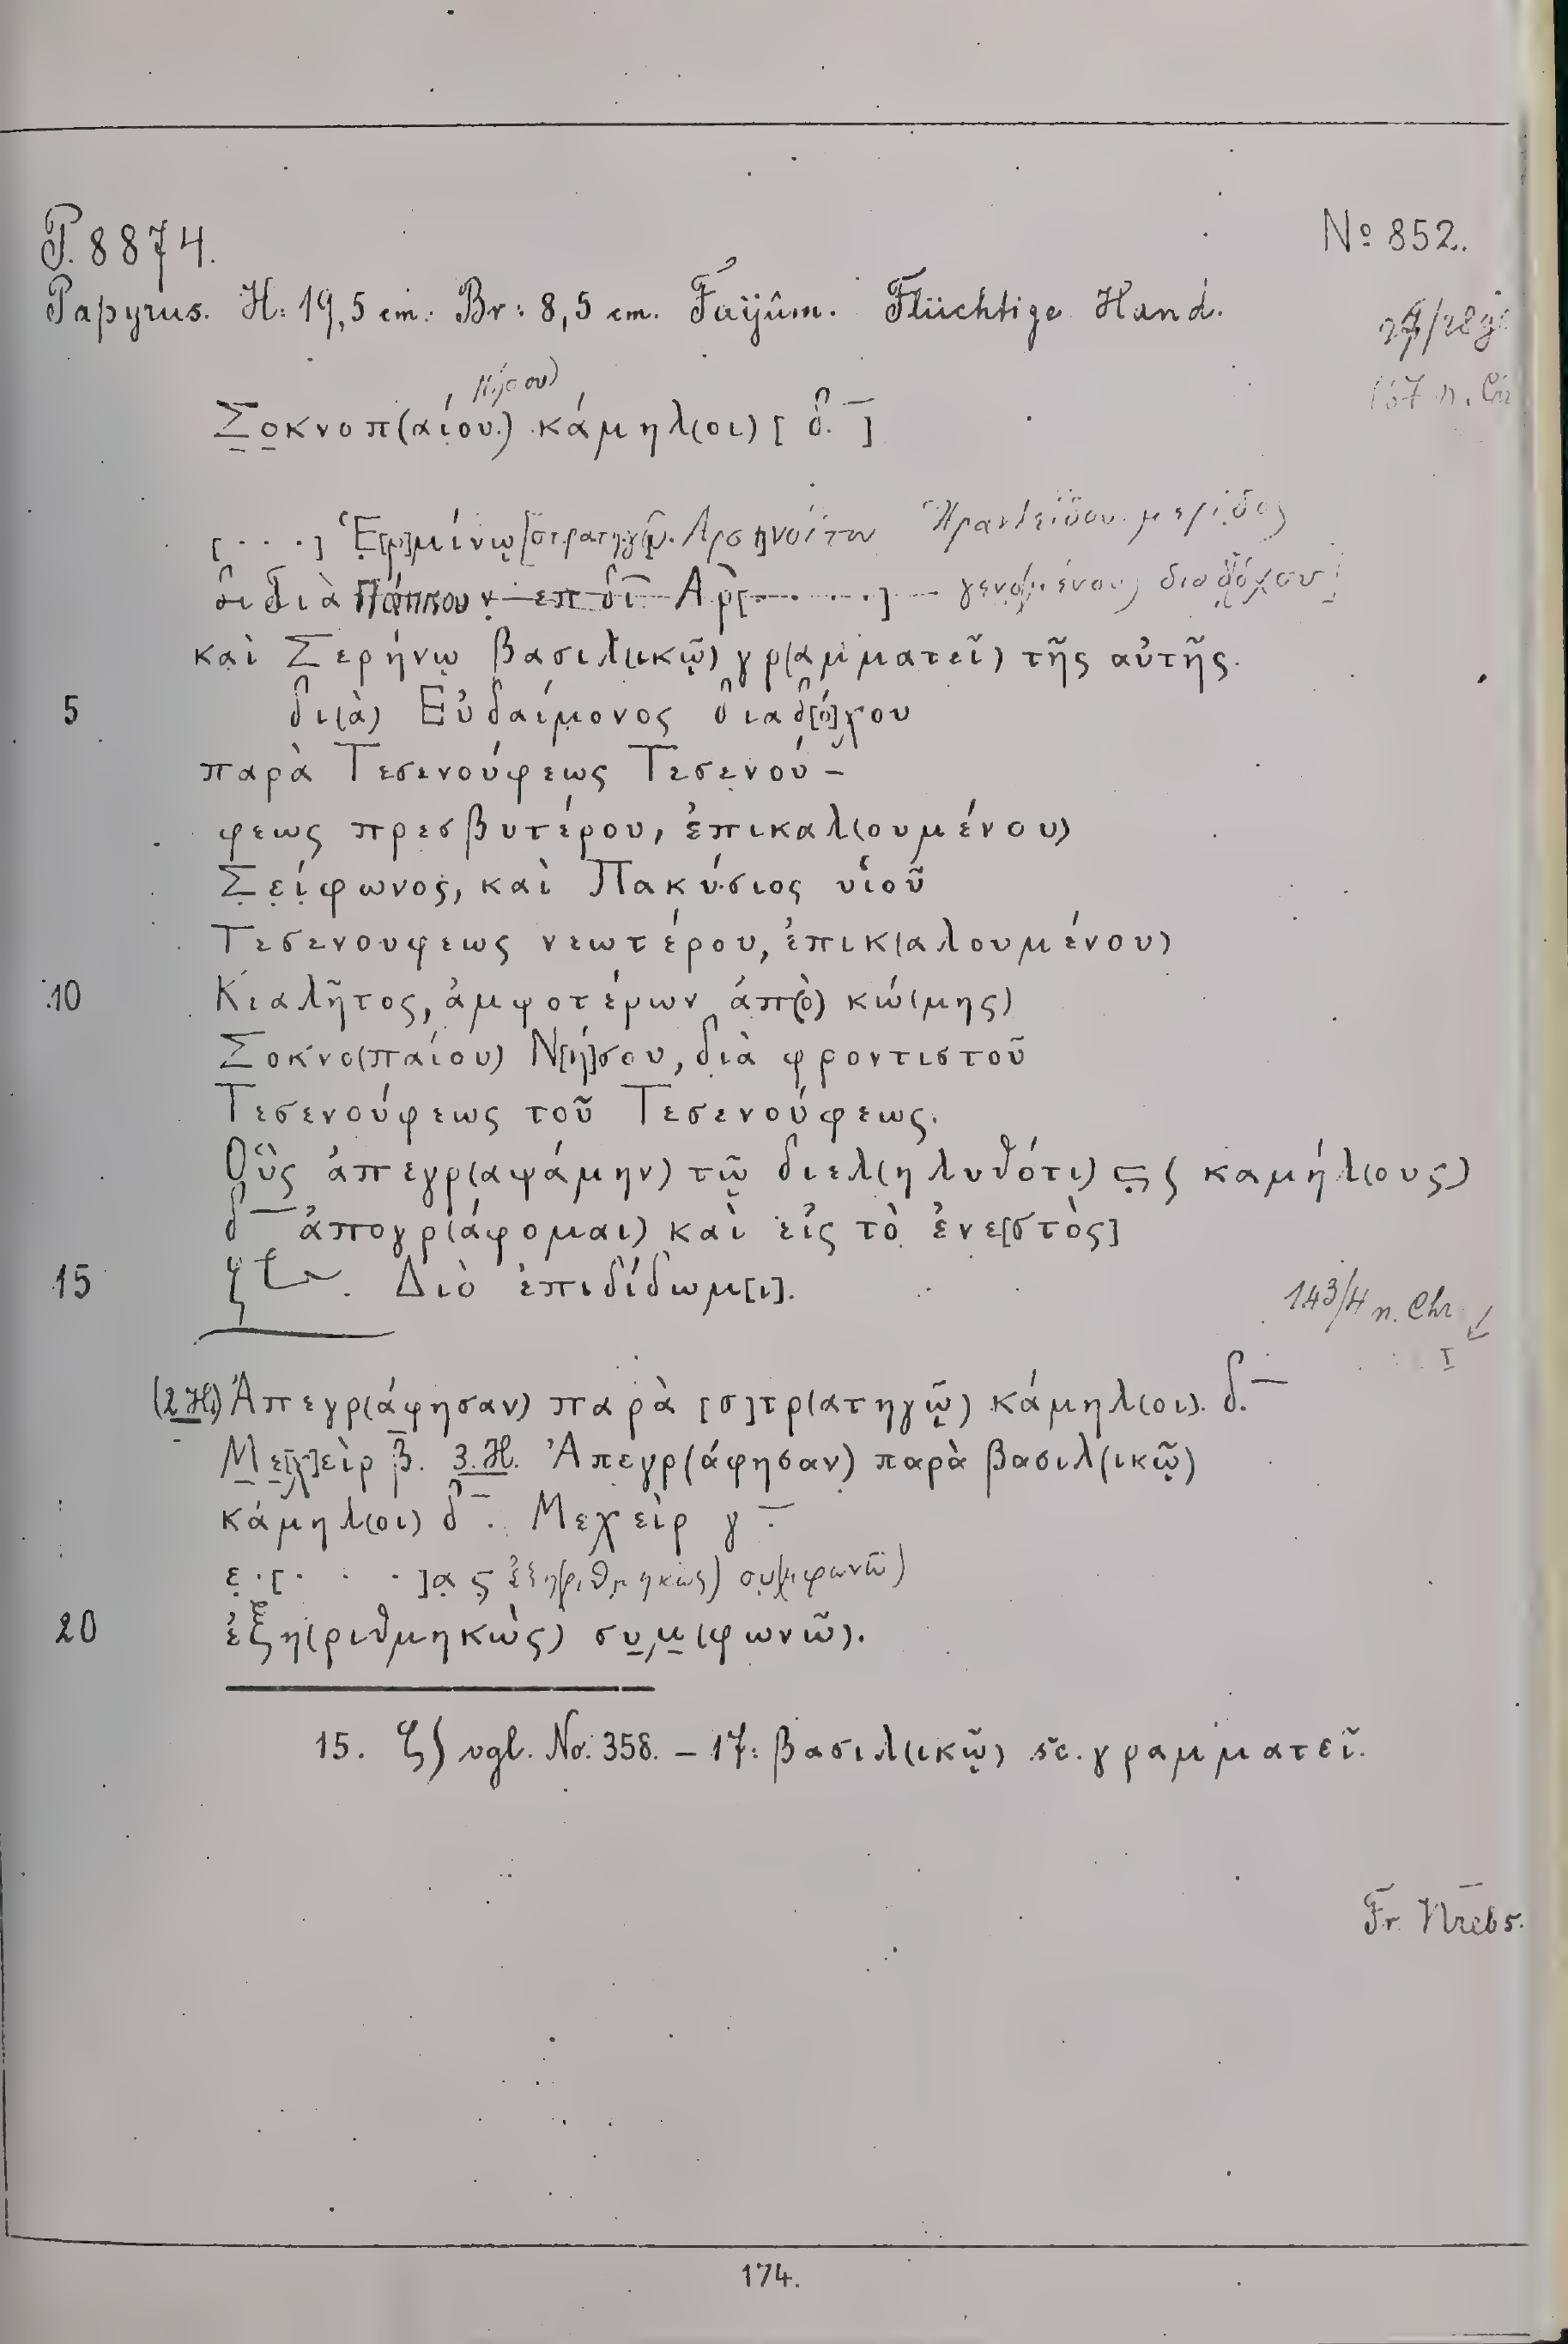 P. 8874.
No 852.
Papyrus. H: 19,5 cm. Br: 8,5 cm. Faijûm. Flüchtige Hand.
Νήσου)
Σ̣ο̣κνοπ(αίου) κάμηλ(οι) [ δ ̅ ]
[ . . . . ] Ἑ[ρ]μίνῳ [στρατηγῷ Ἀρσινοίτου Ἡρακλείδου μερίδος
διὰ Αρ̣[. . . . . . .] γενομένου) διαδόχου
καὶ Σερήνῳ βασιλ(ικῷ) γρ(αμματεῖ) τῆς αὐτῆς
5 δι(ὰ) Εὐδαίμονος διαδ[ό]χου
παρὰ Τεσενούφεως Τεσενού-
φεως πρεσβυτέρου, ἐπικαλ(ουμένου)
Σ̣ε̣ί̣φωνος, καὶ Πακύσιος υἱοῦ
Τεσενουφεως νεωτέρου, ἐπικ(αλουμένου)
10 Κιαλῆτος, ἀμφοτέρων ἀπ(ὸ) κώ(μης)
Σοκνο(παίου) Ν[ή]σου, διὰ φροντιστοῦ
Τεσενούφεως τοῦ Τεσενούφεως.
Οὓς ἀπεγρ(αψάμην) τῷ διελ(ηλυθότι) ϛ̣ ∫ καμήλ(ους)
δ ̅ ἀπογρ(άφομαι) καὶ εἰς τὸ ἐνε[στὸς]
15 ζ . Διὸ ἐπιδίδωμ[ι].
143/4 n. Chr
(2 H.) Ἀπεγρ(άφησαν) παρὰ [σ]τρ(ατηγῷ) κάμηλ(οι) δ ̅
Μ̣ε̣[χ]εὶρ β̅. 3. H. Ἀπεγρ(άφησαν) παρὰ βασιλ(ικῷ)
κάμηλ(οι) δ ̅. Μεχεὶρ γ ̅
ε̣ . [ . . . ]α̣ς ἐξη(ριθμηκὼς) συμ(φωνῶ)
20 ἐξη(ριθμηκὼς) συ̣μ̣(φωνῶ).
15. ζ) vgl. No. 358. – 17: βασιλ(ικῷ) sc. γραμματεῖ.
Fr. Krebs.
174.